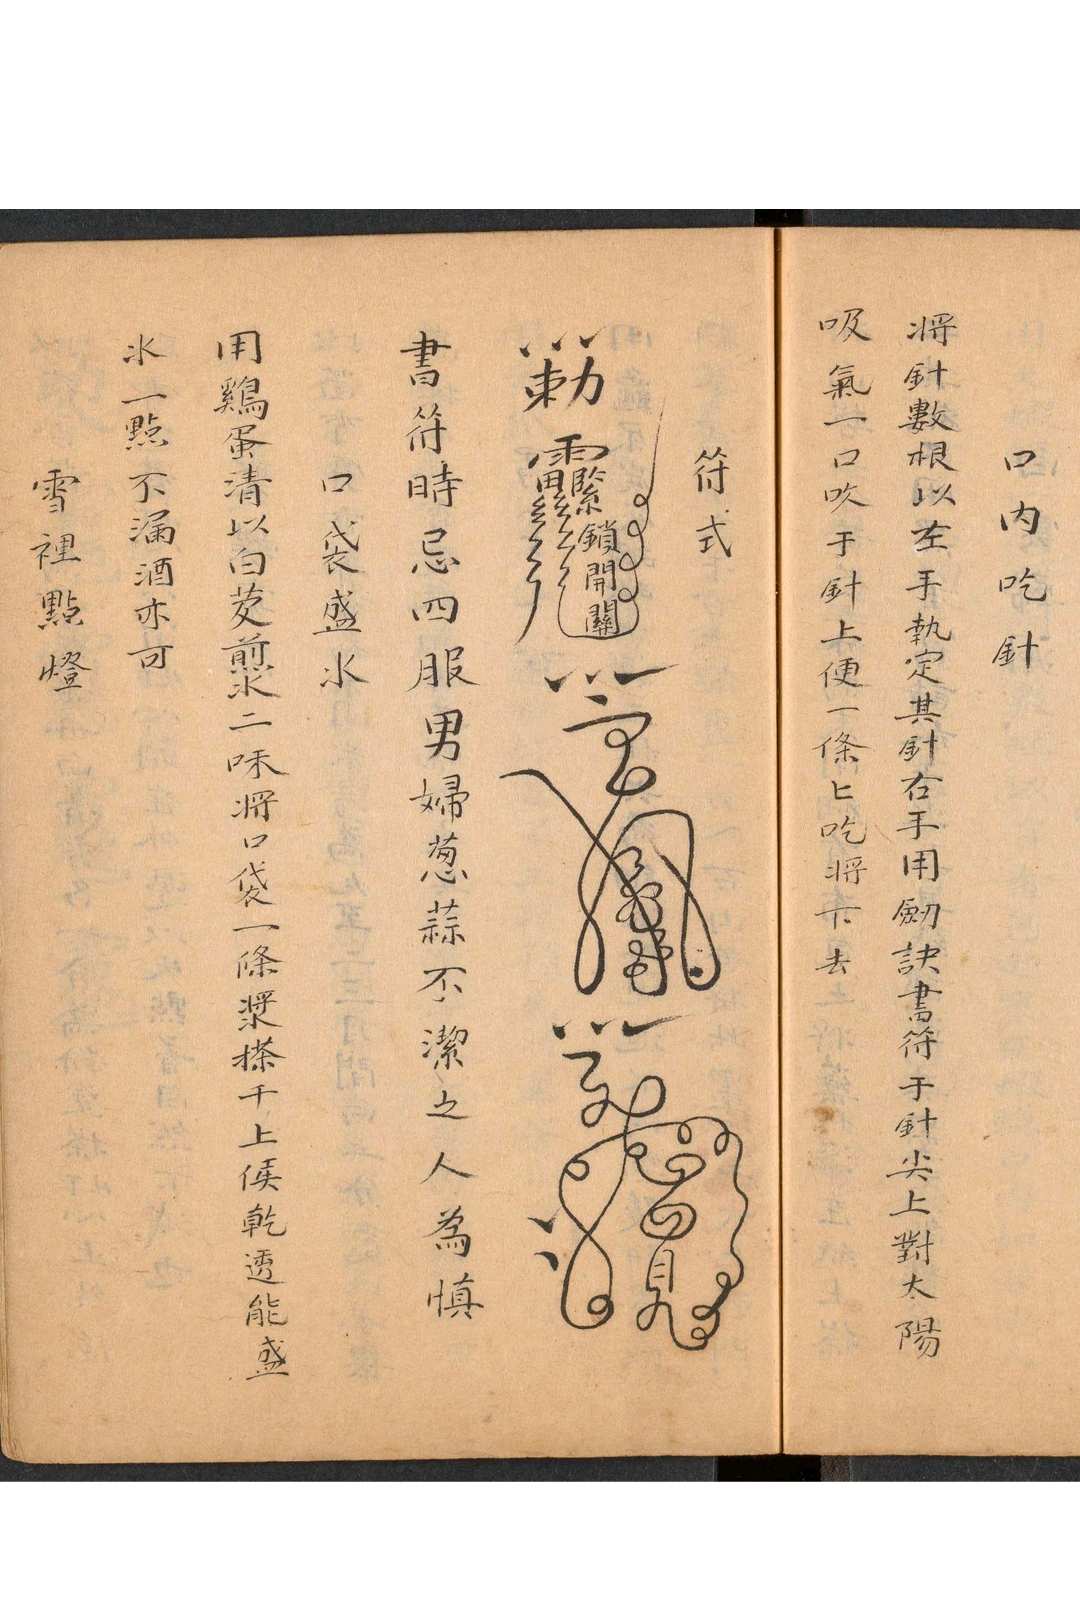 口內吃針
將針數根以左手執定其針右手用劍訣書符于針尖上對太陽
吸氣一口吹于針上便一條匕吃將下去
符式
勅
緊鎖開關
書符時忌四服男婦葱蒜不潔之人為慎
口袋盛水
用鷄蛋清以白芨煎水二味將口袋一條漿搽干上候乾透能盛
水一點不漏酒亦可
雪裡點燈